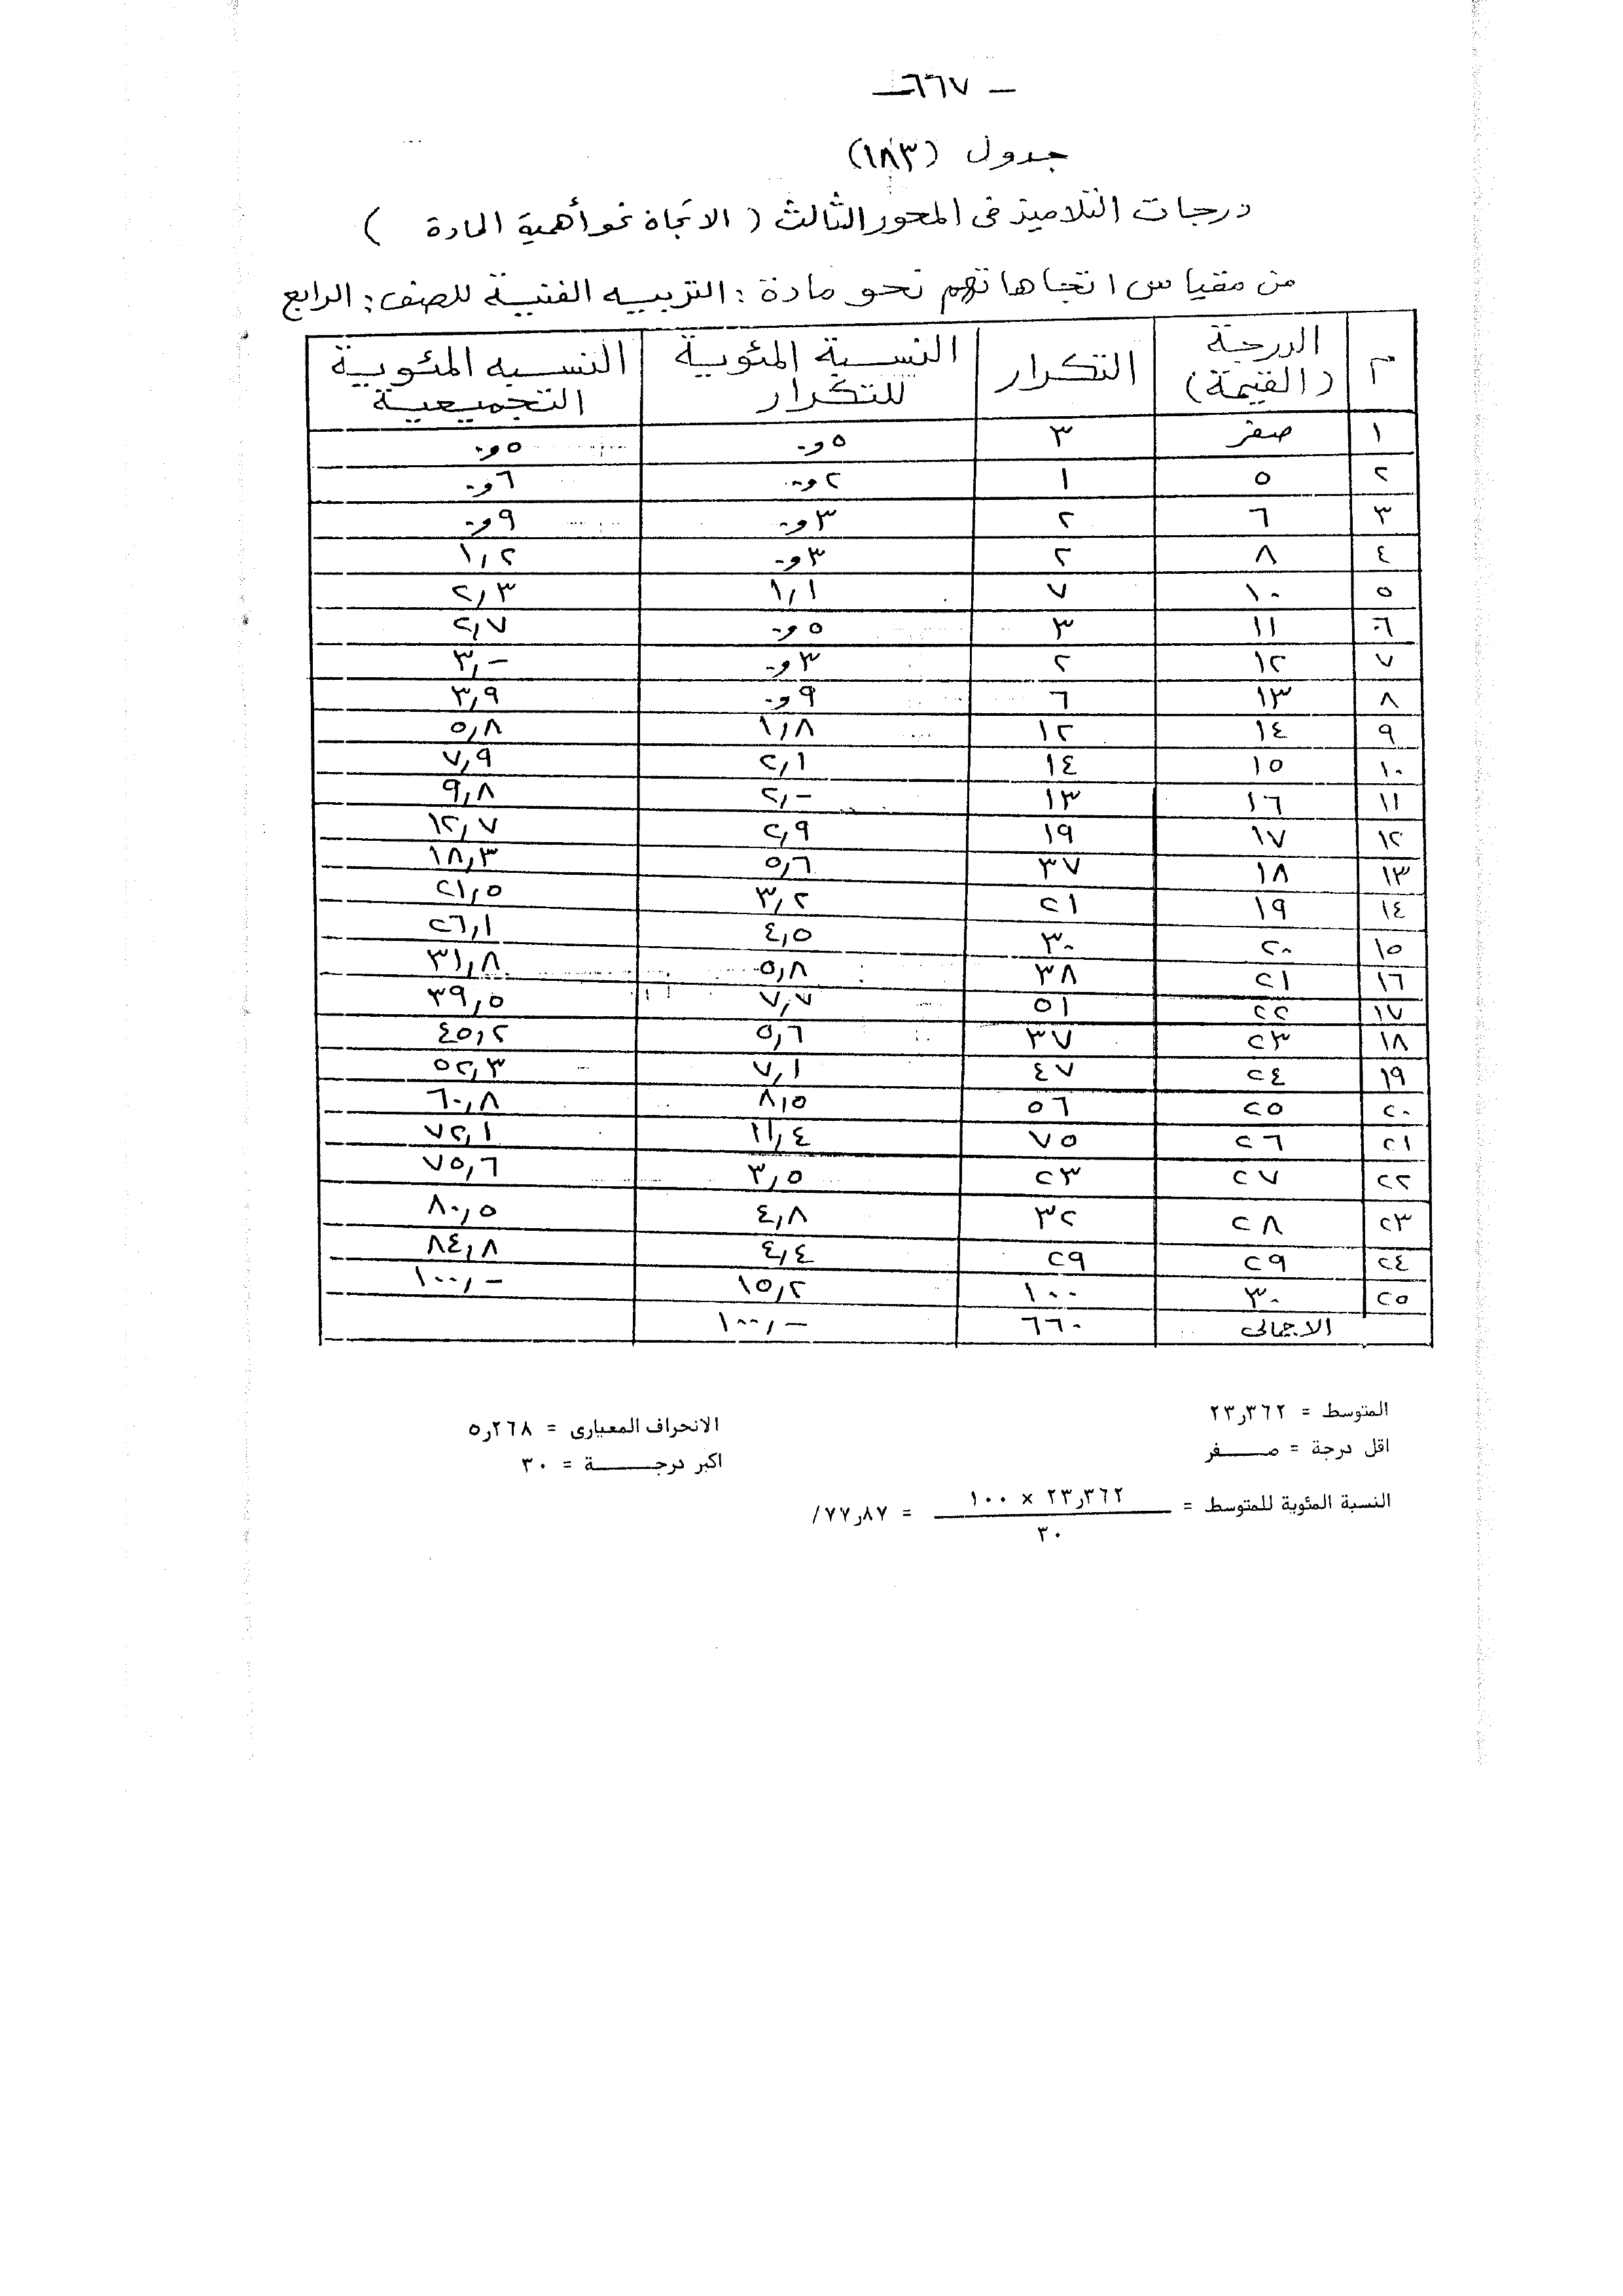 - ٦٦٧ -
جدول (١٨٣)
درجات التلاميذ فى المحور الثالث (الاتجاة نحو أهمية المادة )
من مقياس اتجاهاتهم نحو مادة : التربيه الفنية للصف : الرابع
م الدرجة (القيمة) التكرار النسبة المئوية للتكرار النسبه المئوية التجميعية
١ صفر ٣ ٥و٠ ٥و٠
٢ ٥ ١ ٢و٠ ٦و٠
٣ ٦ ٢ ٣و٠ ٩و٠
٤ ٨ ٢ ٣و٠ ١,٢
٥ ١٠ ٧ ١,١ ٢,٣
٦ ١١ ٣ ٥و٠ ٢,٧
٧ ١٢ ٢ ٣و٠ ٣,-
٨ ١٣ ٦ ٩و٠ ٣,٩
٩ ١٤ ١٢ ١,٨ ٥,٨
١٠ ١٥ ١٤ ٢,١ ٧,٩
١١ ١٦ ١٣ ٢,- ٩,٨
١٢ ١٧ ١٩ ٢,٩ ١٢,٧
١٣ ١٨ ٣٧ ٥,٦ ١٨,٣
١٤ ١٩ ٢١ ٣,٢ ٢١,٥
١٥ ٢٠ ٣٠ ٤,٥ ٢٦,١
١٦ ٢١ ٣٨ ٥,٨ ٣١,٨
١٧ ٢٢ ٥١ ٧,٧ ٣٩,٥
١٨ ٢٣ ٣٧ ٥,٦ ٤٥,٢
١٩ ٢٤ ٤٧ ٧,١ ٥٢,٣
٢٠ ٢٥ ٥٦ ٨,٥ ٦٠,٨
٢١ ٢٦ ٧٥ ١١,٤ ٧٢,١
٢٢ ٢٧ ٢٣ ٣,٥ ٧٥,٦
٢٣ ٢٨ ٣٢ ٤,٨ ٨٠,٥
٢٤ ٢٩ ٢٩ ٤,٤ ٨٤,٨
٢٥ ٣٠ ١٠٠ ١٥,٢ ١٠٠,-
الاجمالى ٦٦٠ ١٠٠,-
المتوسط = ٢٣ر٣٦٢ الانحراف المعيارى = ٥ر٢٦٨
اقل درجة = صفر اكبر درجة = ٣٠
النسبة المئوية للمتوسط = ٢٣ر٣٦٢ × ١٠٠ = ٧٧ر٨٧/
٣٠